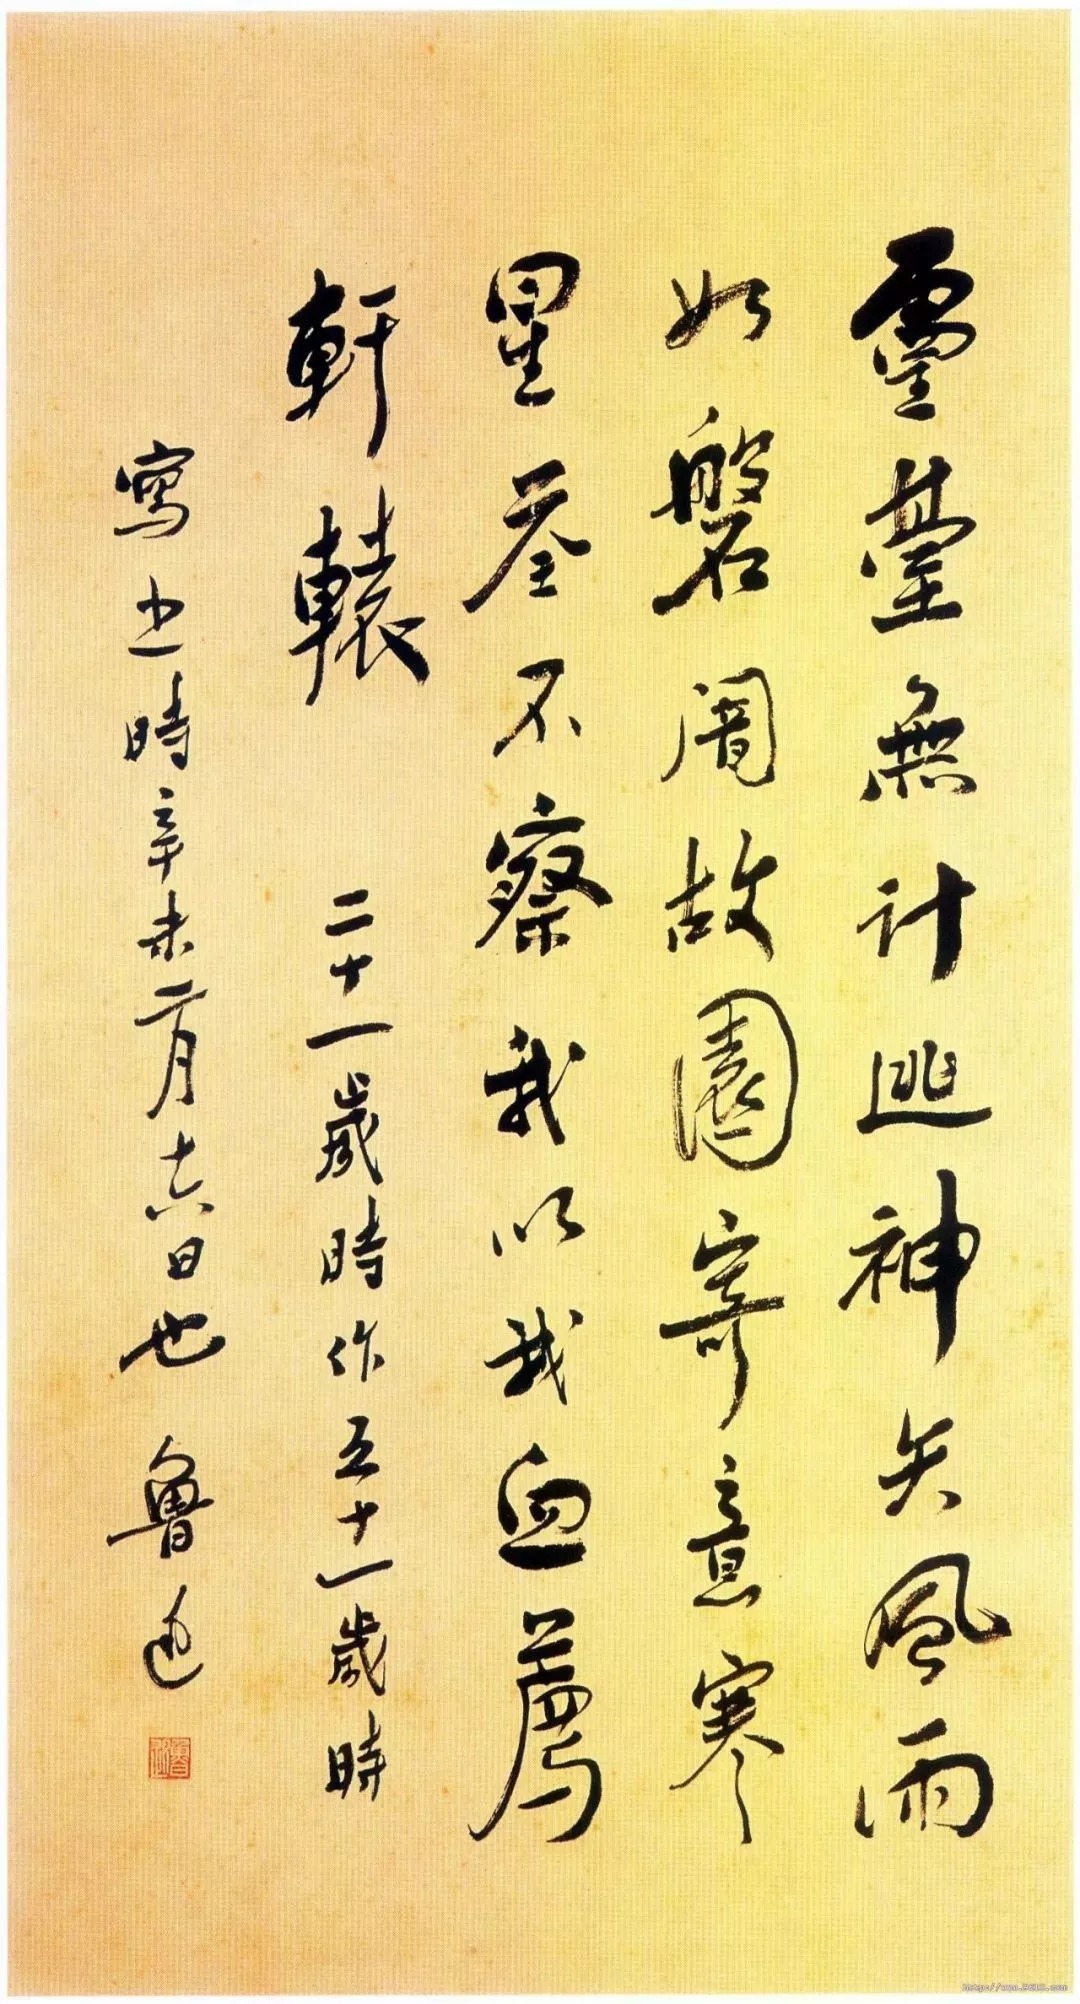 靈臺無計逃神矢風雨
如磐闇故園寄意寒
星荃不察我以我血薦
軒轅 二十一歲時作五十一歲時
寫之時辛未二月十六日也 魯迅
魯迅